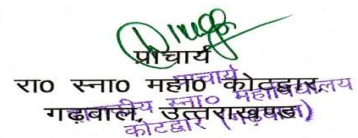 प्राचार्य
रा० स्ना० महा० कोटद्वार,
गढ़वाल, उत्तराखण्ड
प्राचार्य
राजकीय स्ना० महाविद्यालय
कोटद्वार (गढ़वाल)